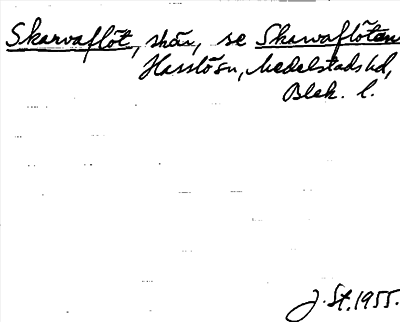 Skarvaflöt, skär, se Skarvaflöten
Hasslösn, Medelstads hd,
Blek. l.
J. St. 1955.